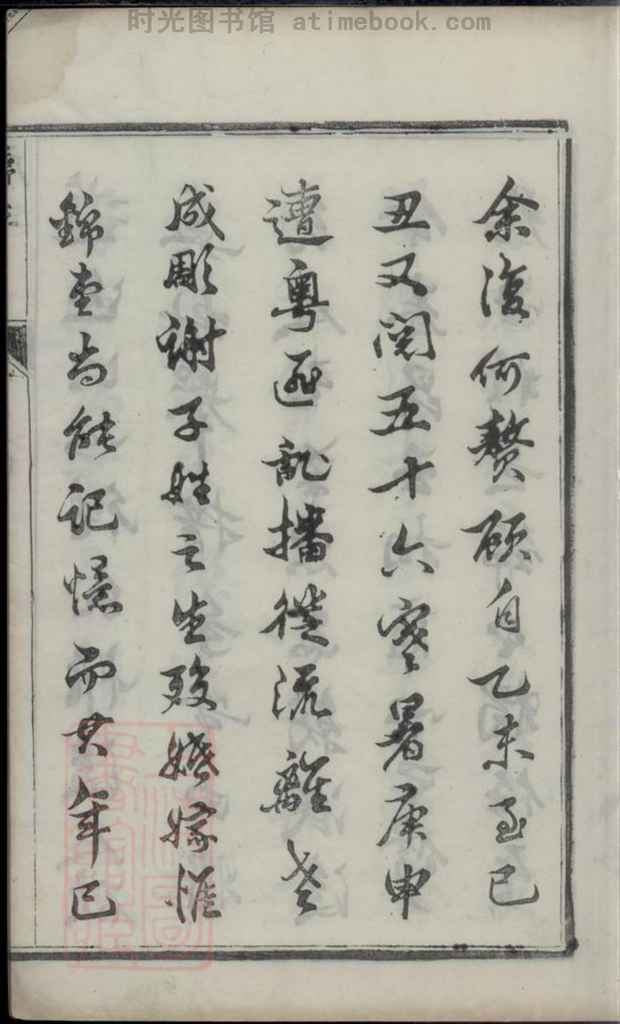 时光图书馆 atimebook.com
余復何贅顧自乙未至己
丑又閱五十六寒暑庚申
遭粵匪亂播徙流離老
成彫謝子姓之生歿婚嫁惟
錦堂尚能記憶而其年已